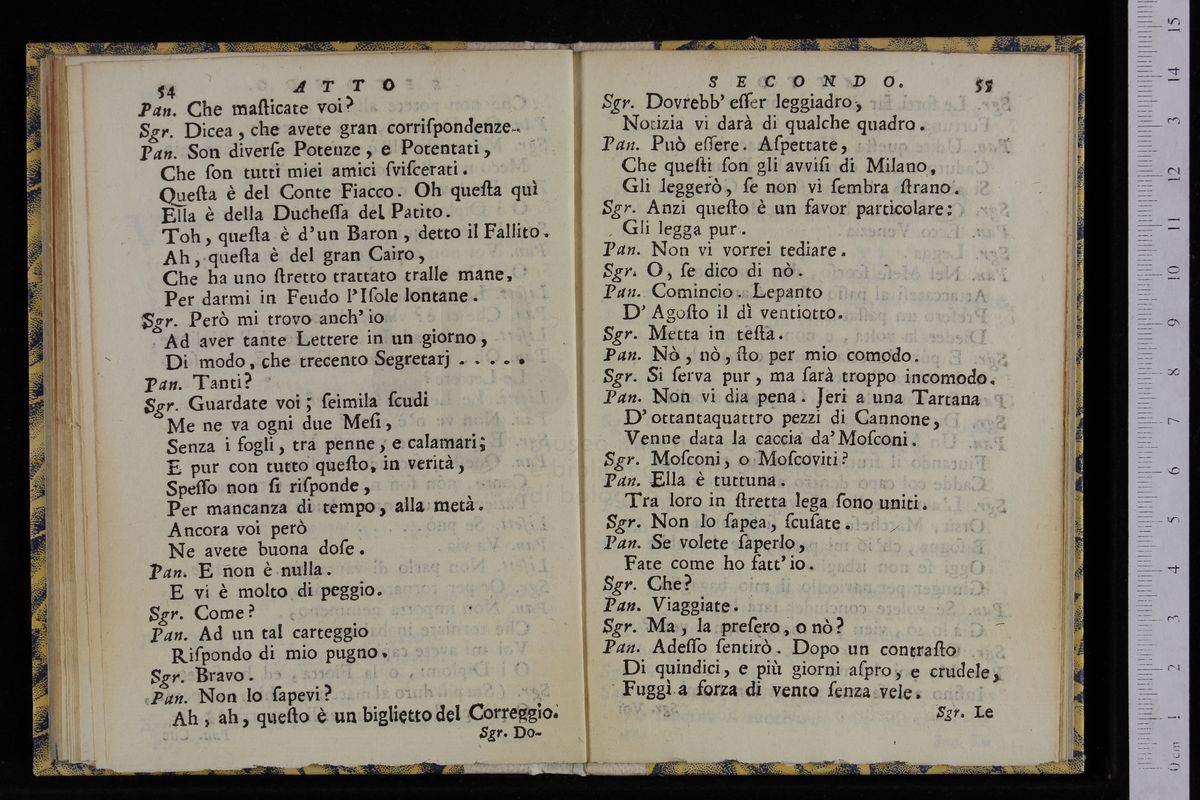 54 ATTO
Pan. Che maſticate voi?
Sgr. Dicea, che avete gran corriſpondenze.
Pan. Son diverſe Potenze, e Potentati,
Che ſon tutti miei amici ſviſcerati.
Queſta è del Conte Fiacco. Oh queſta quì
Ella è della Ducheſſa del Patito.
Toh, queſta è d'un Baron, detto il Fallito.
Ah, queſta è del gran Cairo,
Che ha uno ſtretto trattato tralle mane,
Per darmi in Feudo l'Iſole lontane.
Sgr. Però mi trovo anch' io
Ad aver tante Lettere in un giorno,
Di modo, che trecento Segretarj . . . . .
Pan. Tanti?
Sgr. Guardate voi; ſeimila ſcudi
Me ne va ogni due Meſi,
Senza i fogli, tra penne, e calamari;
E pur con tutto queſto, in verità,
Speſſo non ſi riſponde,
Per mancanza di tempo, alla metà.
Ancora voi però
Ne avete buona doſe.
Pan. E non è nulla.
E vi è molto di peggio.
Sgr. Come?
Pan. Ad un tal carteggio
Riſpondo di mio pugno.
Sgr. Bravo.
Pan. Non lo ſapevi?
Ah, ah, queſto è un biglietto del Correggio.
Sgr. Do-
SECONDO. 55
Sgr. Dovrebb' eſſer leggiadro,
Notizia vi darà di qualche quadro.
Pan. Può eſſere. Aſpettate,
Che queſti ſon gli avviſi di Milano,
Gli leggerò, ſe non vi ſembra ſtrano.
Sgr. Anzi queſto è un favor particolare:
Gli legga pur.
Pan. Non vi vorrei tediare.
Sgr. O, ſe dico di nò.
Pan. Comincio. Lepanto
D' Agoſto il dì ventiotto.
Sgr. Metta in teſta.
Pan. Nò, nò, ſto per mio comodo.
Sgr. Si ſerva pur, ma ſarà troppo incomodo.
Pan. Non vi dia pena. Jeri a una Tartana
D' ottantaquattro pezzi di Cannone,
Venne data la caccia da' Moſconi.
Sgr. Moſconi, o Moſcoviti?
Pan. Ella è tuttuna.
Tra loro in ſtretta lega ſono uniti.
Sgr. Non lo ſapea, ſcuſate.
Pan. Se volete ſaperlo,
Fate come ho fatt' io.
Sgr. Che?
Pan. Viaggiate.
Sgr. Ma, la preſero, o nò?
Pan. Adeſſo ſentirò. Dopo un contraſto
Di quindici, e più giorni aſpro, e crudele,
Fuggì a forza di vento ſenza vele.
Sgr. Le
15
14
13
12
11
10
9
8
7
6
5
4
3
2
1
0 cm